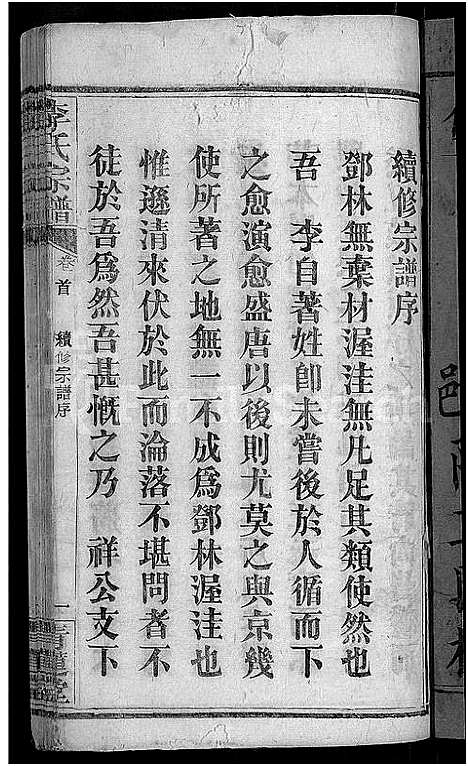 續修宗譜序
鄧林無棄材渥洼無凡足其類使然也
吾　李自著姓卽未嘗後於人循而下
之愈演愈盛唐以後則尤莫之與京幾
使所著之地無一不成爲鄧林渥洼也
惟遜清來伏於此而淪落不堪問者不
徒於吾爲然吾甚慨之乃　祥公支下
李氏宗譜
卷首
續修宗譜序
一